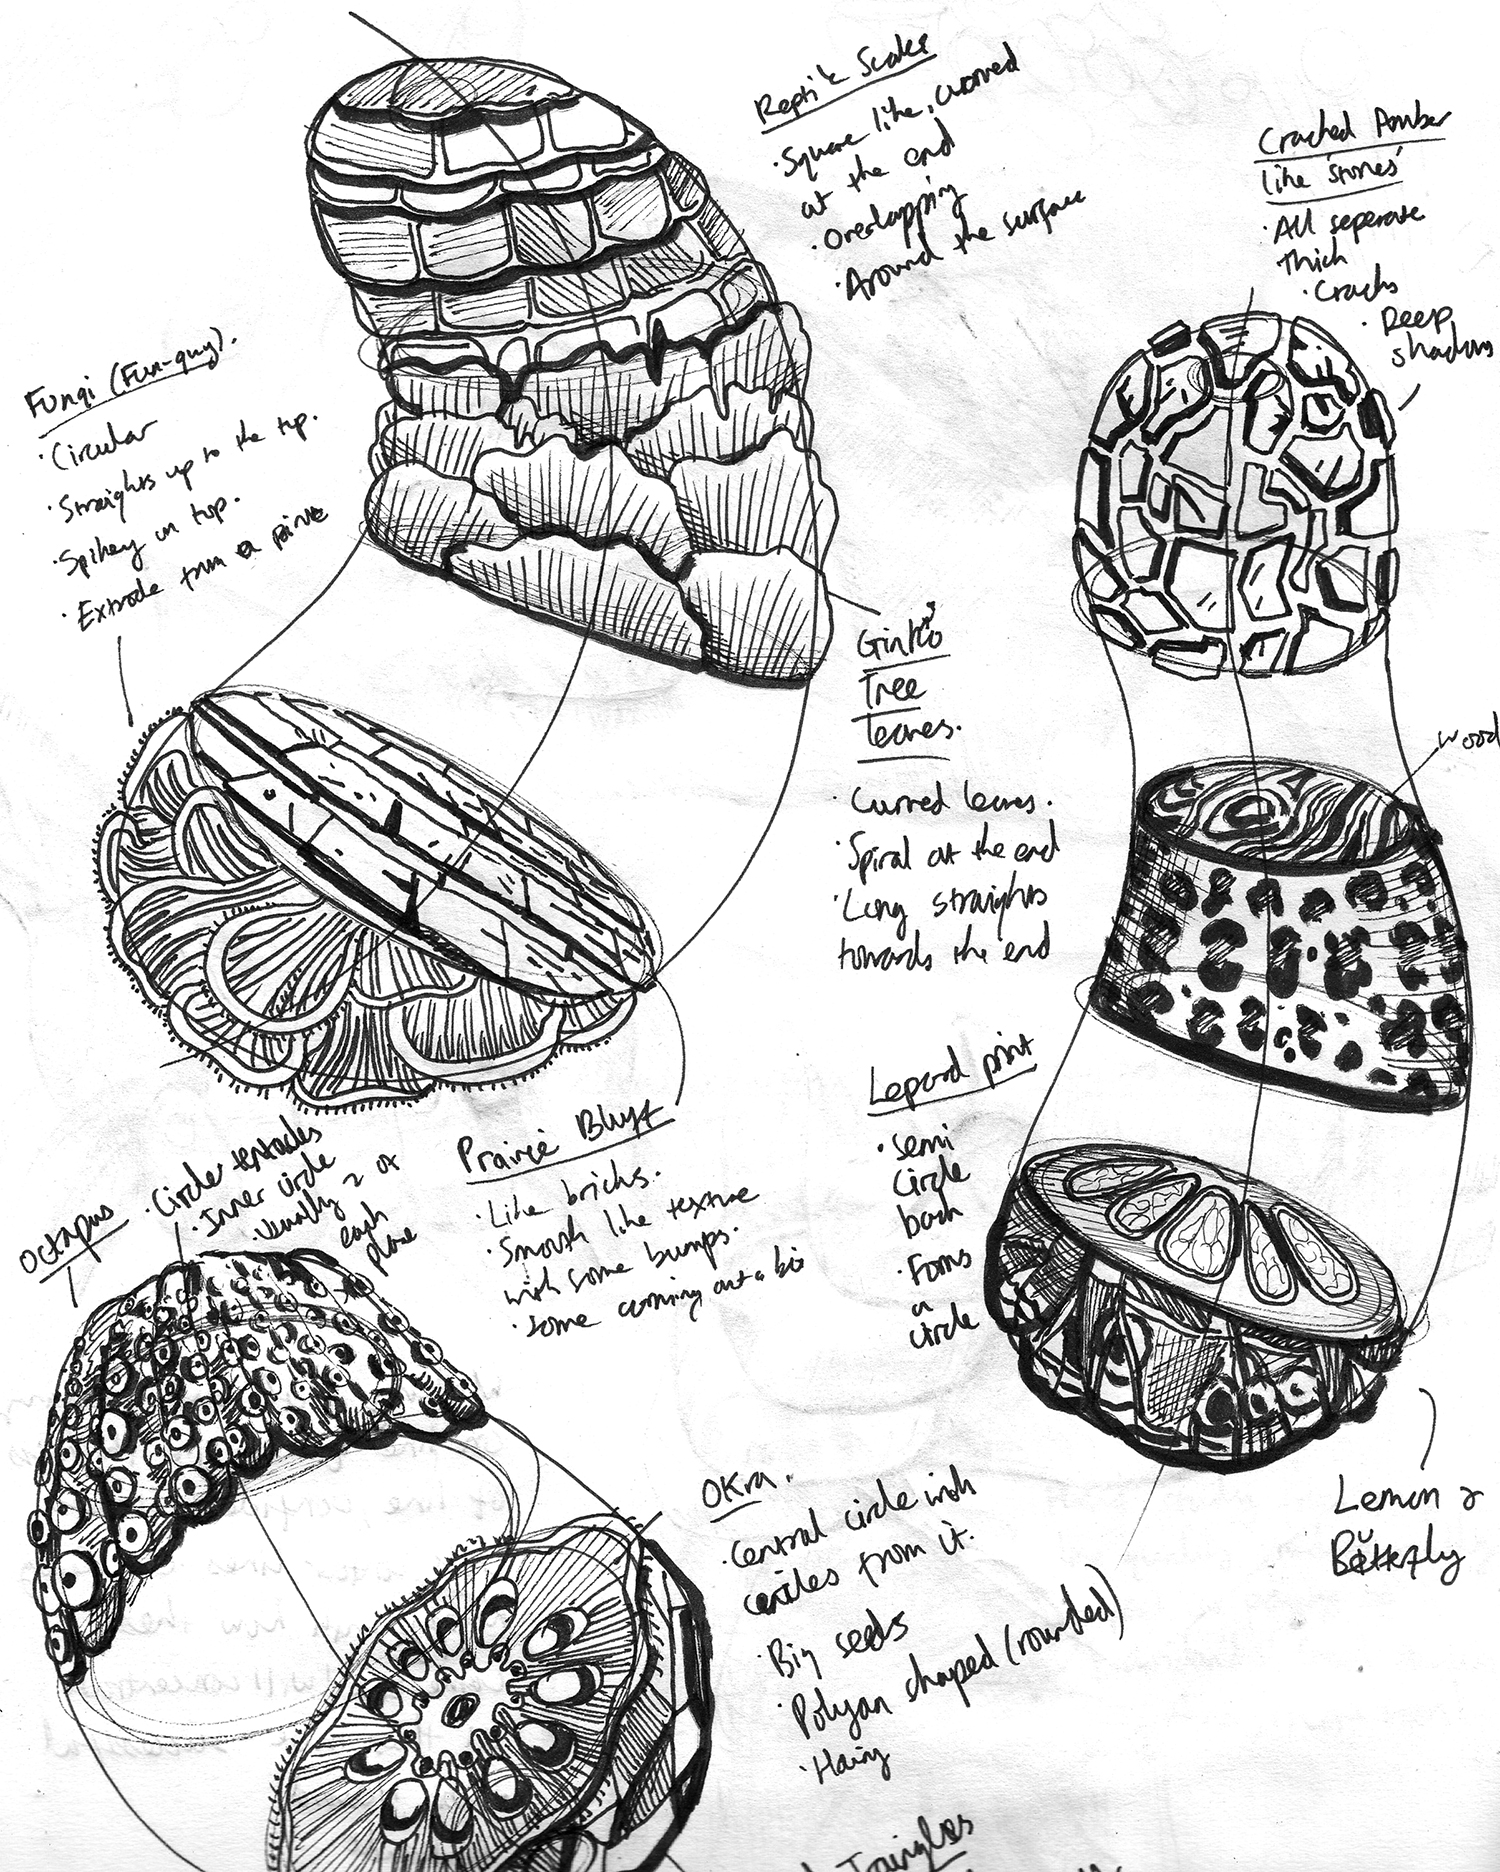 Reptile Scales
• Square like, curved
at the end
• Overlapping
• Around the surface
Cracked Amber
like 'stones'
• All seperate
thick
• Cracks
• Deep
shadows
Fungi (Fun-guy).
• Circular
• Straights up to the top.
• Spikey on top.
• Extrode from a point
Ginko
Tree
leaves.
• Curved leaves.
• Spiral at the end
• Long straights
towards the end
wood
Lepord print
• Semi
circle
both
• Forms
a
circle
Prairie Bluff
• Like bricks.
• Smooth like texture
with some bumps.
• Some coming out a bit
Octopus
• Circle tentacles
• Inner circle
• Usually 2 on
each
plane
OKra.
• Central circle with
circles from it.
• Big seeds
• Polygon shaped (rounded)
• Hairy
Lemon &
Butterfly